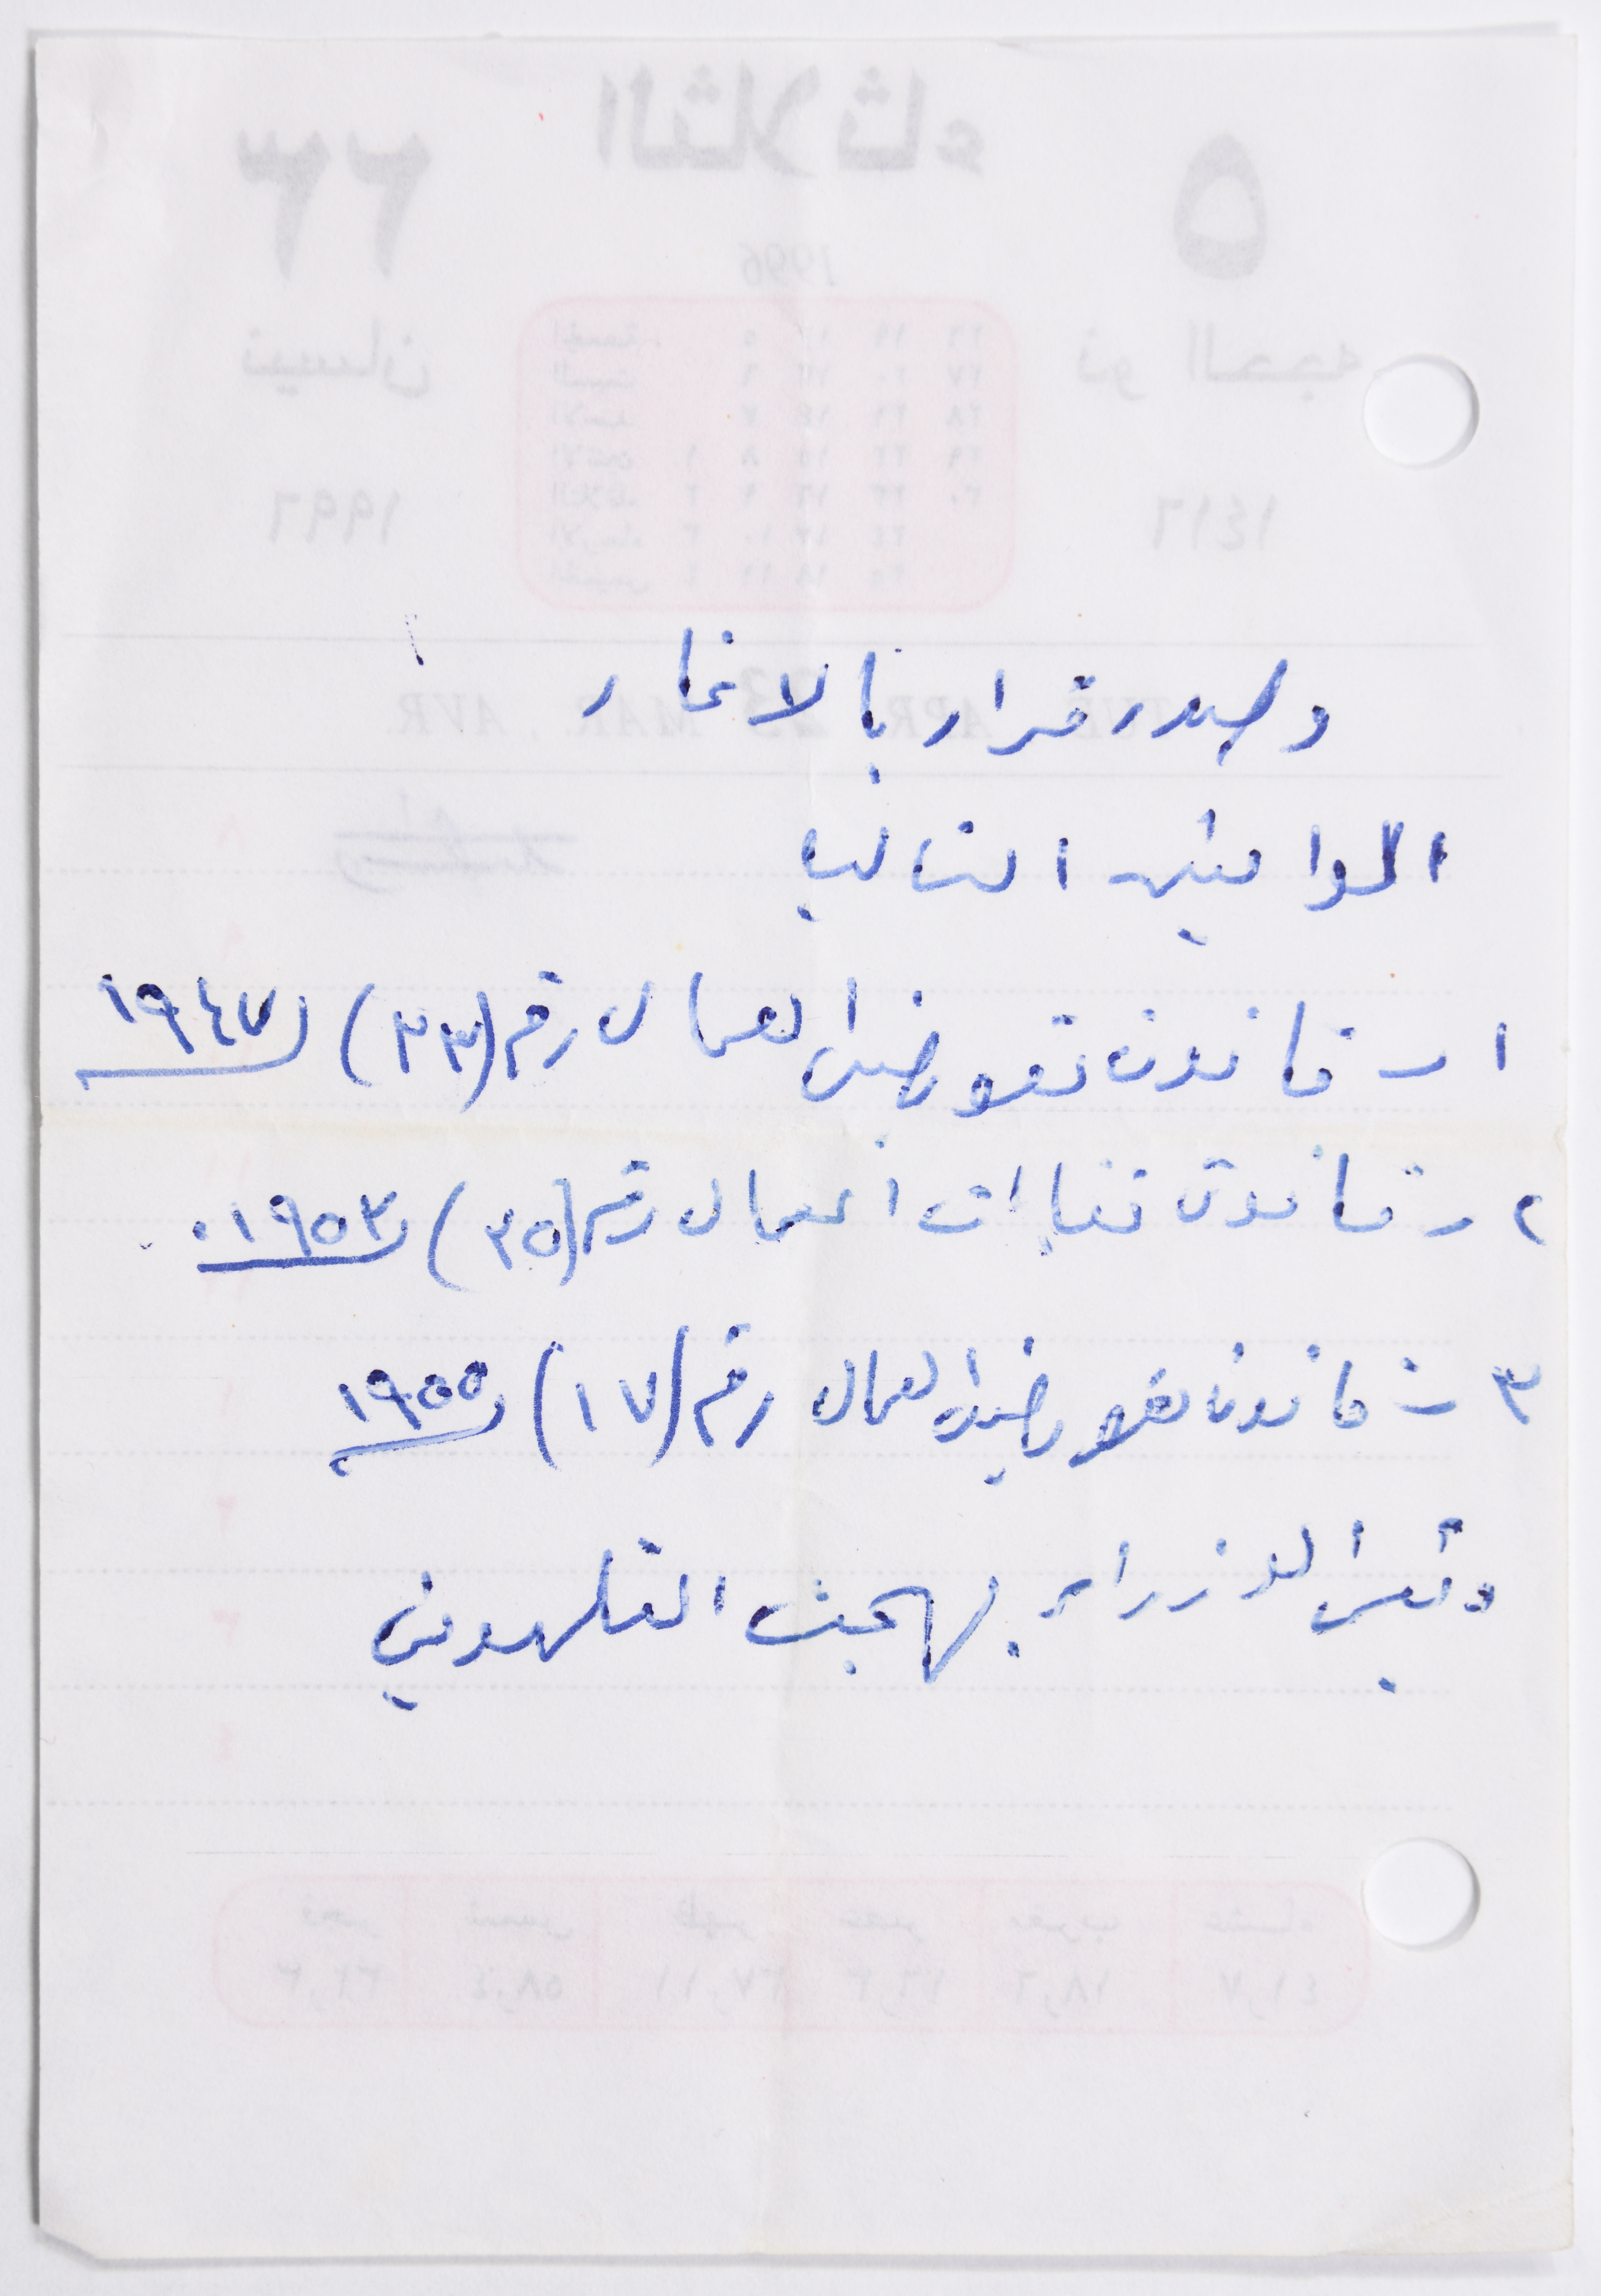 وصدر قرار بالاغار
القوانين التاليه
١ - قانون تعويض العمال رقم (٣٣) ١٩٤٧
٢ - قانون نقابات العمال رقم (٣٥) ١٩٥٣.
٣ - قانون تعويض العمال رقم (١٧) ١٩٥٥
رئيس الوزراء بهجت التلهوني